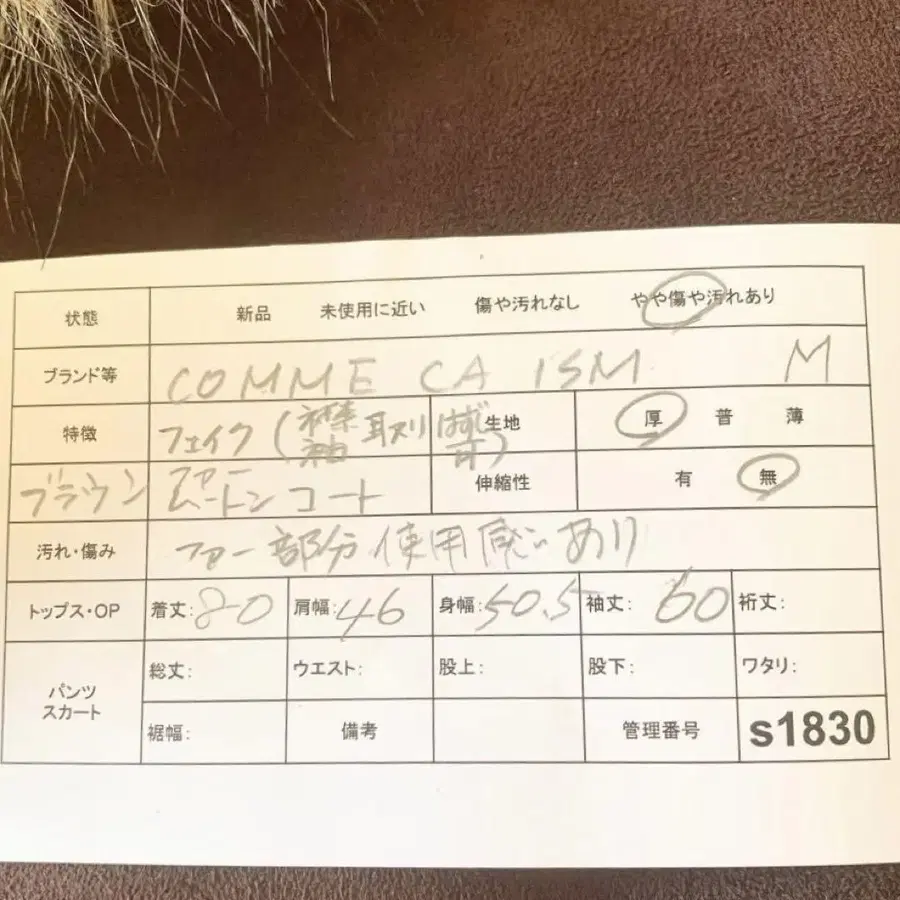 状態 新品 未使用に近い 傷や汚れなし やや傷や汚れあり
ブランド等 COMME CA ISM M
特徴 フェイク(襟袖取りはずし可) 生地 厚 普 薄
ブラウン ファームートンコート 伸縮性 有 無
汚れ・傷み ファー部分使用感あり
トップス・OP 着丈:80 肩幅:46 身幅:50.5 袖丈:60 裄丈:
パンツ スカート 総丈: ウエスト: 股上: 股下: ワタリ:
裾幅: 備考 管理番号 s1830